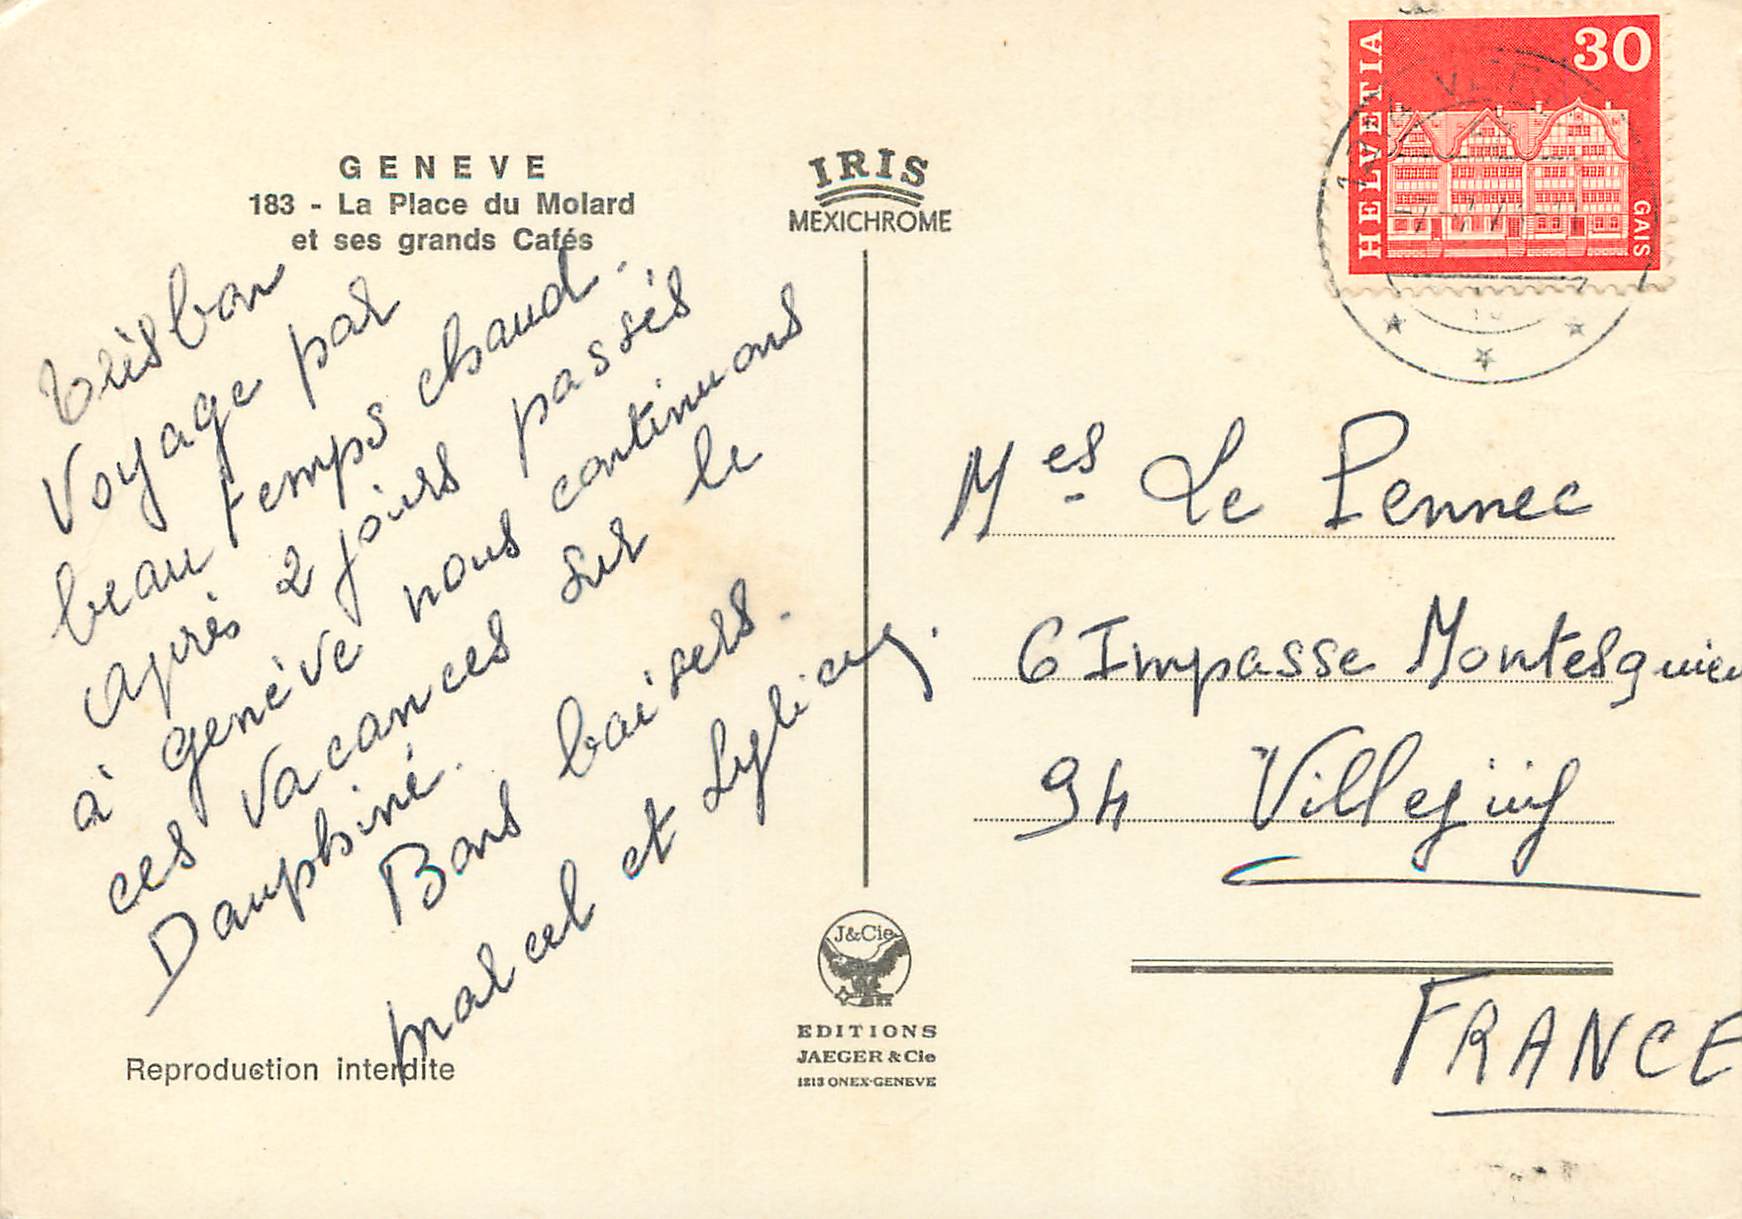 GENEVE
183 - La Place du Molard
et ses grands Cafés
très bon
Voyage par
beau temps chaud.
après 2 jours passés
à genève nous continuons
ces vacances sur le
Dauphiné.
Bons baisers.
marcel et
Reproduction interdite
IRIS
MEXICHROME
J&Cie
EDITIONS
JAEGER & Cie
1213 ONEX-GENEVE
HELVETIA
30
GAIS
Mes Le Pennec
6 Impasse Montesquieu
94 Villejuif
FRANCE